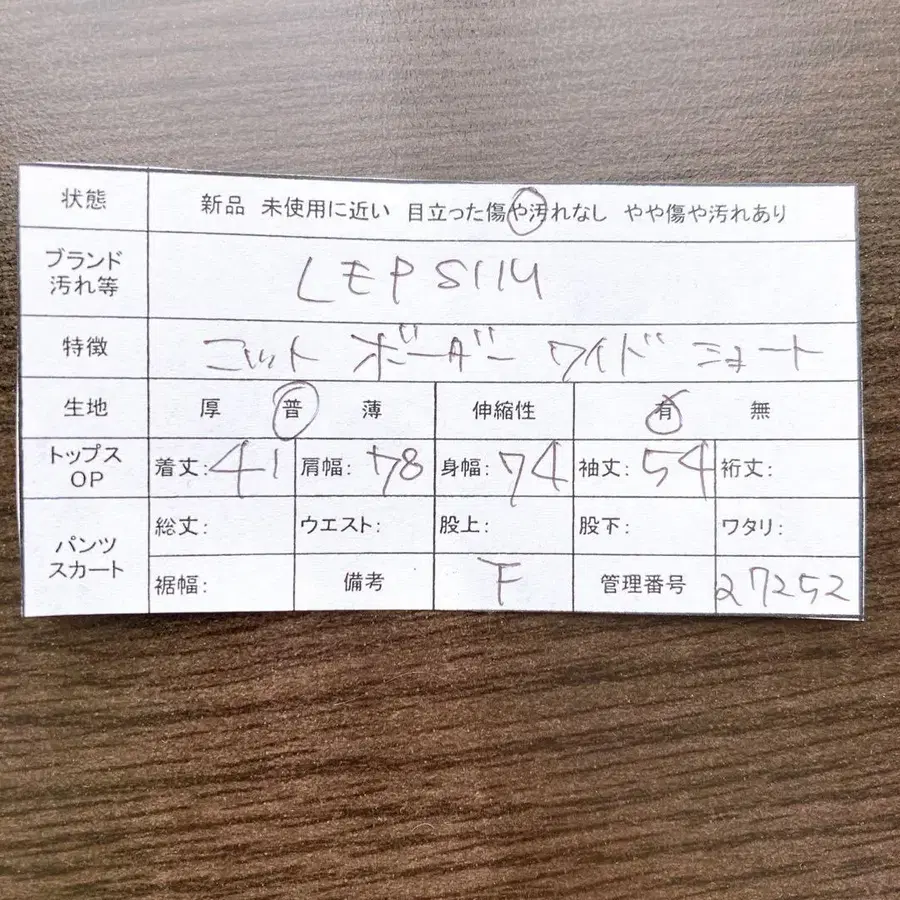 状態 新品 未使用に近い 目立った傷や汚れなし やや傷や汚れあり
ブランド
汚れ等 LEPSIM
特徴 ニット ボーダー ワイド ショート
生地 厚 普 薄 伸縮性 有 無
トップス
OP 着丈:41 肩幅:78 身幅:74 袖丈:54 裄丈:
パンツ
スカート 総丈: ウエスト: 股上: 股下: ワタリ:
裾幅: 備考 F 管理番号 27252